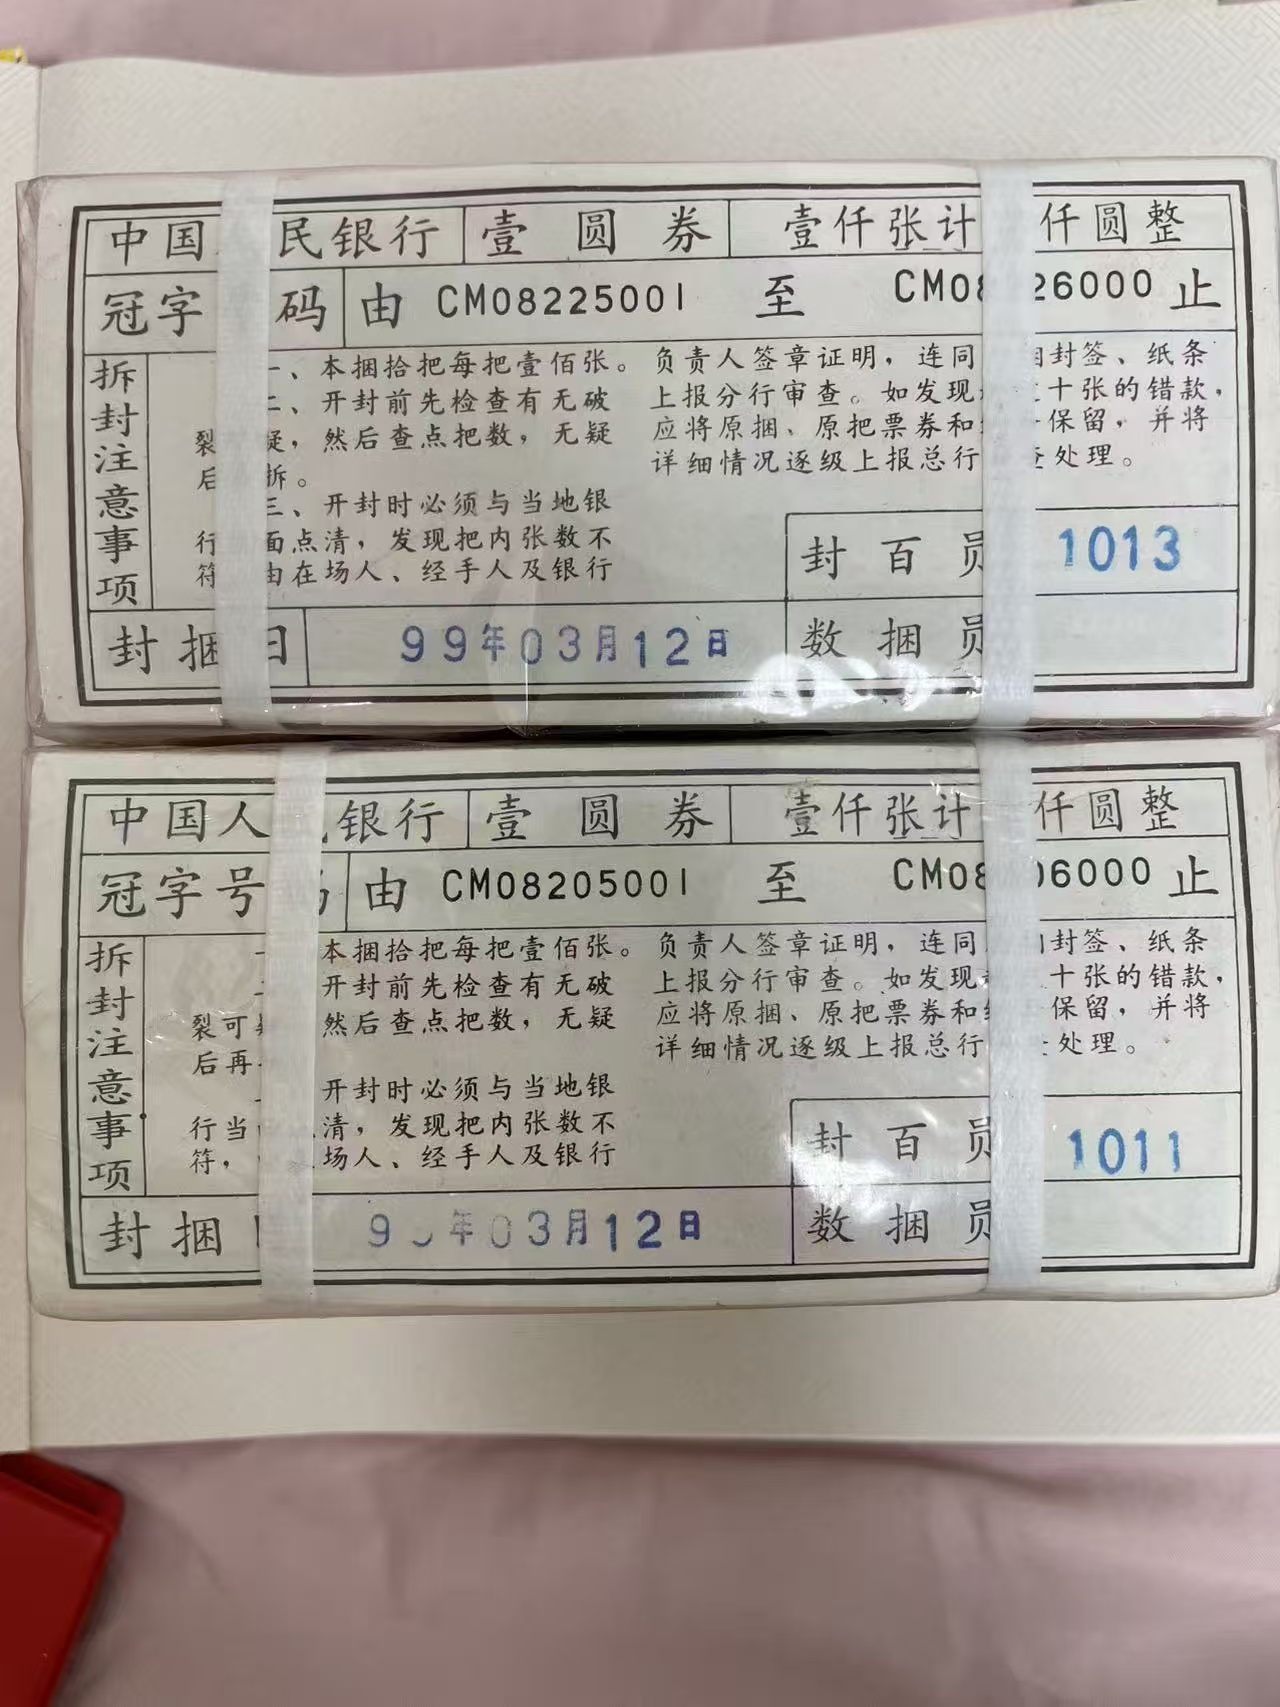 中国 民银行 壹圆券 壹仟张计 仟圆整
冠字 码 由 CM08225001 至 CM08 26000 止
拆封注意事项
一、本捆拾把每把壹佰张。
二、开封前先检查有无破
裂 疑，然后查点把数，无疑
后 拆。
三、开封时必须与当地银
行 面点清，发现把内张数不
符 由在场人、经手人及银行
负责人签章证明，连同 封签、纸条
上报分行审查。如发现 十张的错款，
应将原捆、原把票券和 保留，并将
详细情况逐级上报总行 处理。
封百员 1013
封捆日 99年03月12日 数捆员
中国人 银行 壹圆券 壹仟张计 仟圆整
冠字号 由 CM08205001 至 CM08 06000 止
拆封注意事项
本捆拾把每把壹佰张。
开封前先检查有无破
裂可 然后查点把数，无疑
后再
开封时必须与当地银
行当 清，发现把内张数不
符， 场人、经手人及银行
负责人签章证明，连同 封签、纸条
上报分行审查。如发现 十张的错款，
应将原捆、原把票券和 保留，并将
详细情况逐级上报总行 处理。
封百员 1011
封捆 9 年03月12日 数捆员